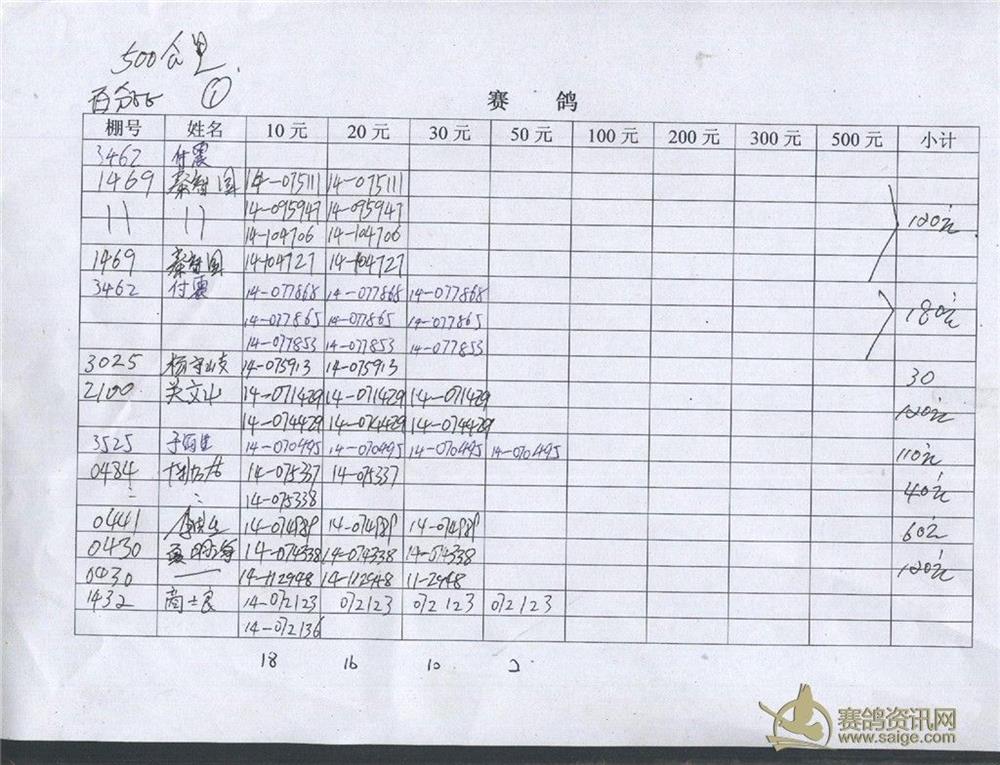 500公里
百分 ①
赛 鸽
棚号 姓名 10元 20元 30元 50元 100元 200元 300元 500元 小计
3462 付震
1469 秦智国 14-075111 14-075111
11 11 14-095947 14-095947 120元
14-104706 14-104706
1469 秦智国 14-104727 14-104727
3462 付震 14-077868 14-077868 14-077868
14-077865 14-077865 14-077865 180元
14-077853 14-077853 14-077853
3025 杨守岐 14-075913 14-075913 30
2100 关文山 14-071429 14-071429 14-071429
14-074429 14-074429 14-074429 120元
3525 14-070495 14-070495 14-070495 14-070495 110元
0484 14-075337 14-075337
14-075338 40元
0441 14-074989 14-074989 14-074989 60元
0430 14-074338 14-074338 14-074338
0430 14-112948 14-112948 11-2948 120元
1432 商士良 14-072123 072123 072123 072123
14-072136
18 16 10 2
赛鸽资讯网
www.saige.com